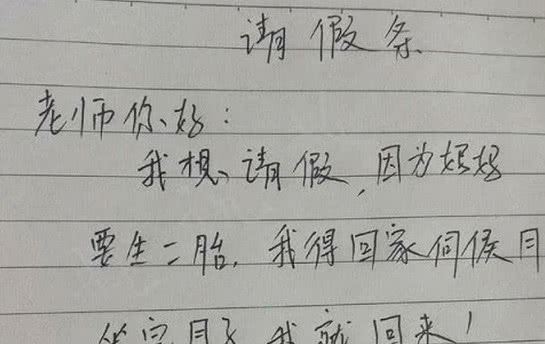 请假条
老师你好：
我想请假，因为妈妈
要生二胎，我得回家伺候月
坐完月子我就回来！